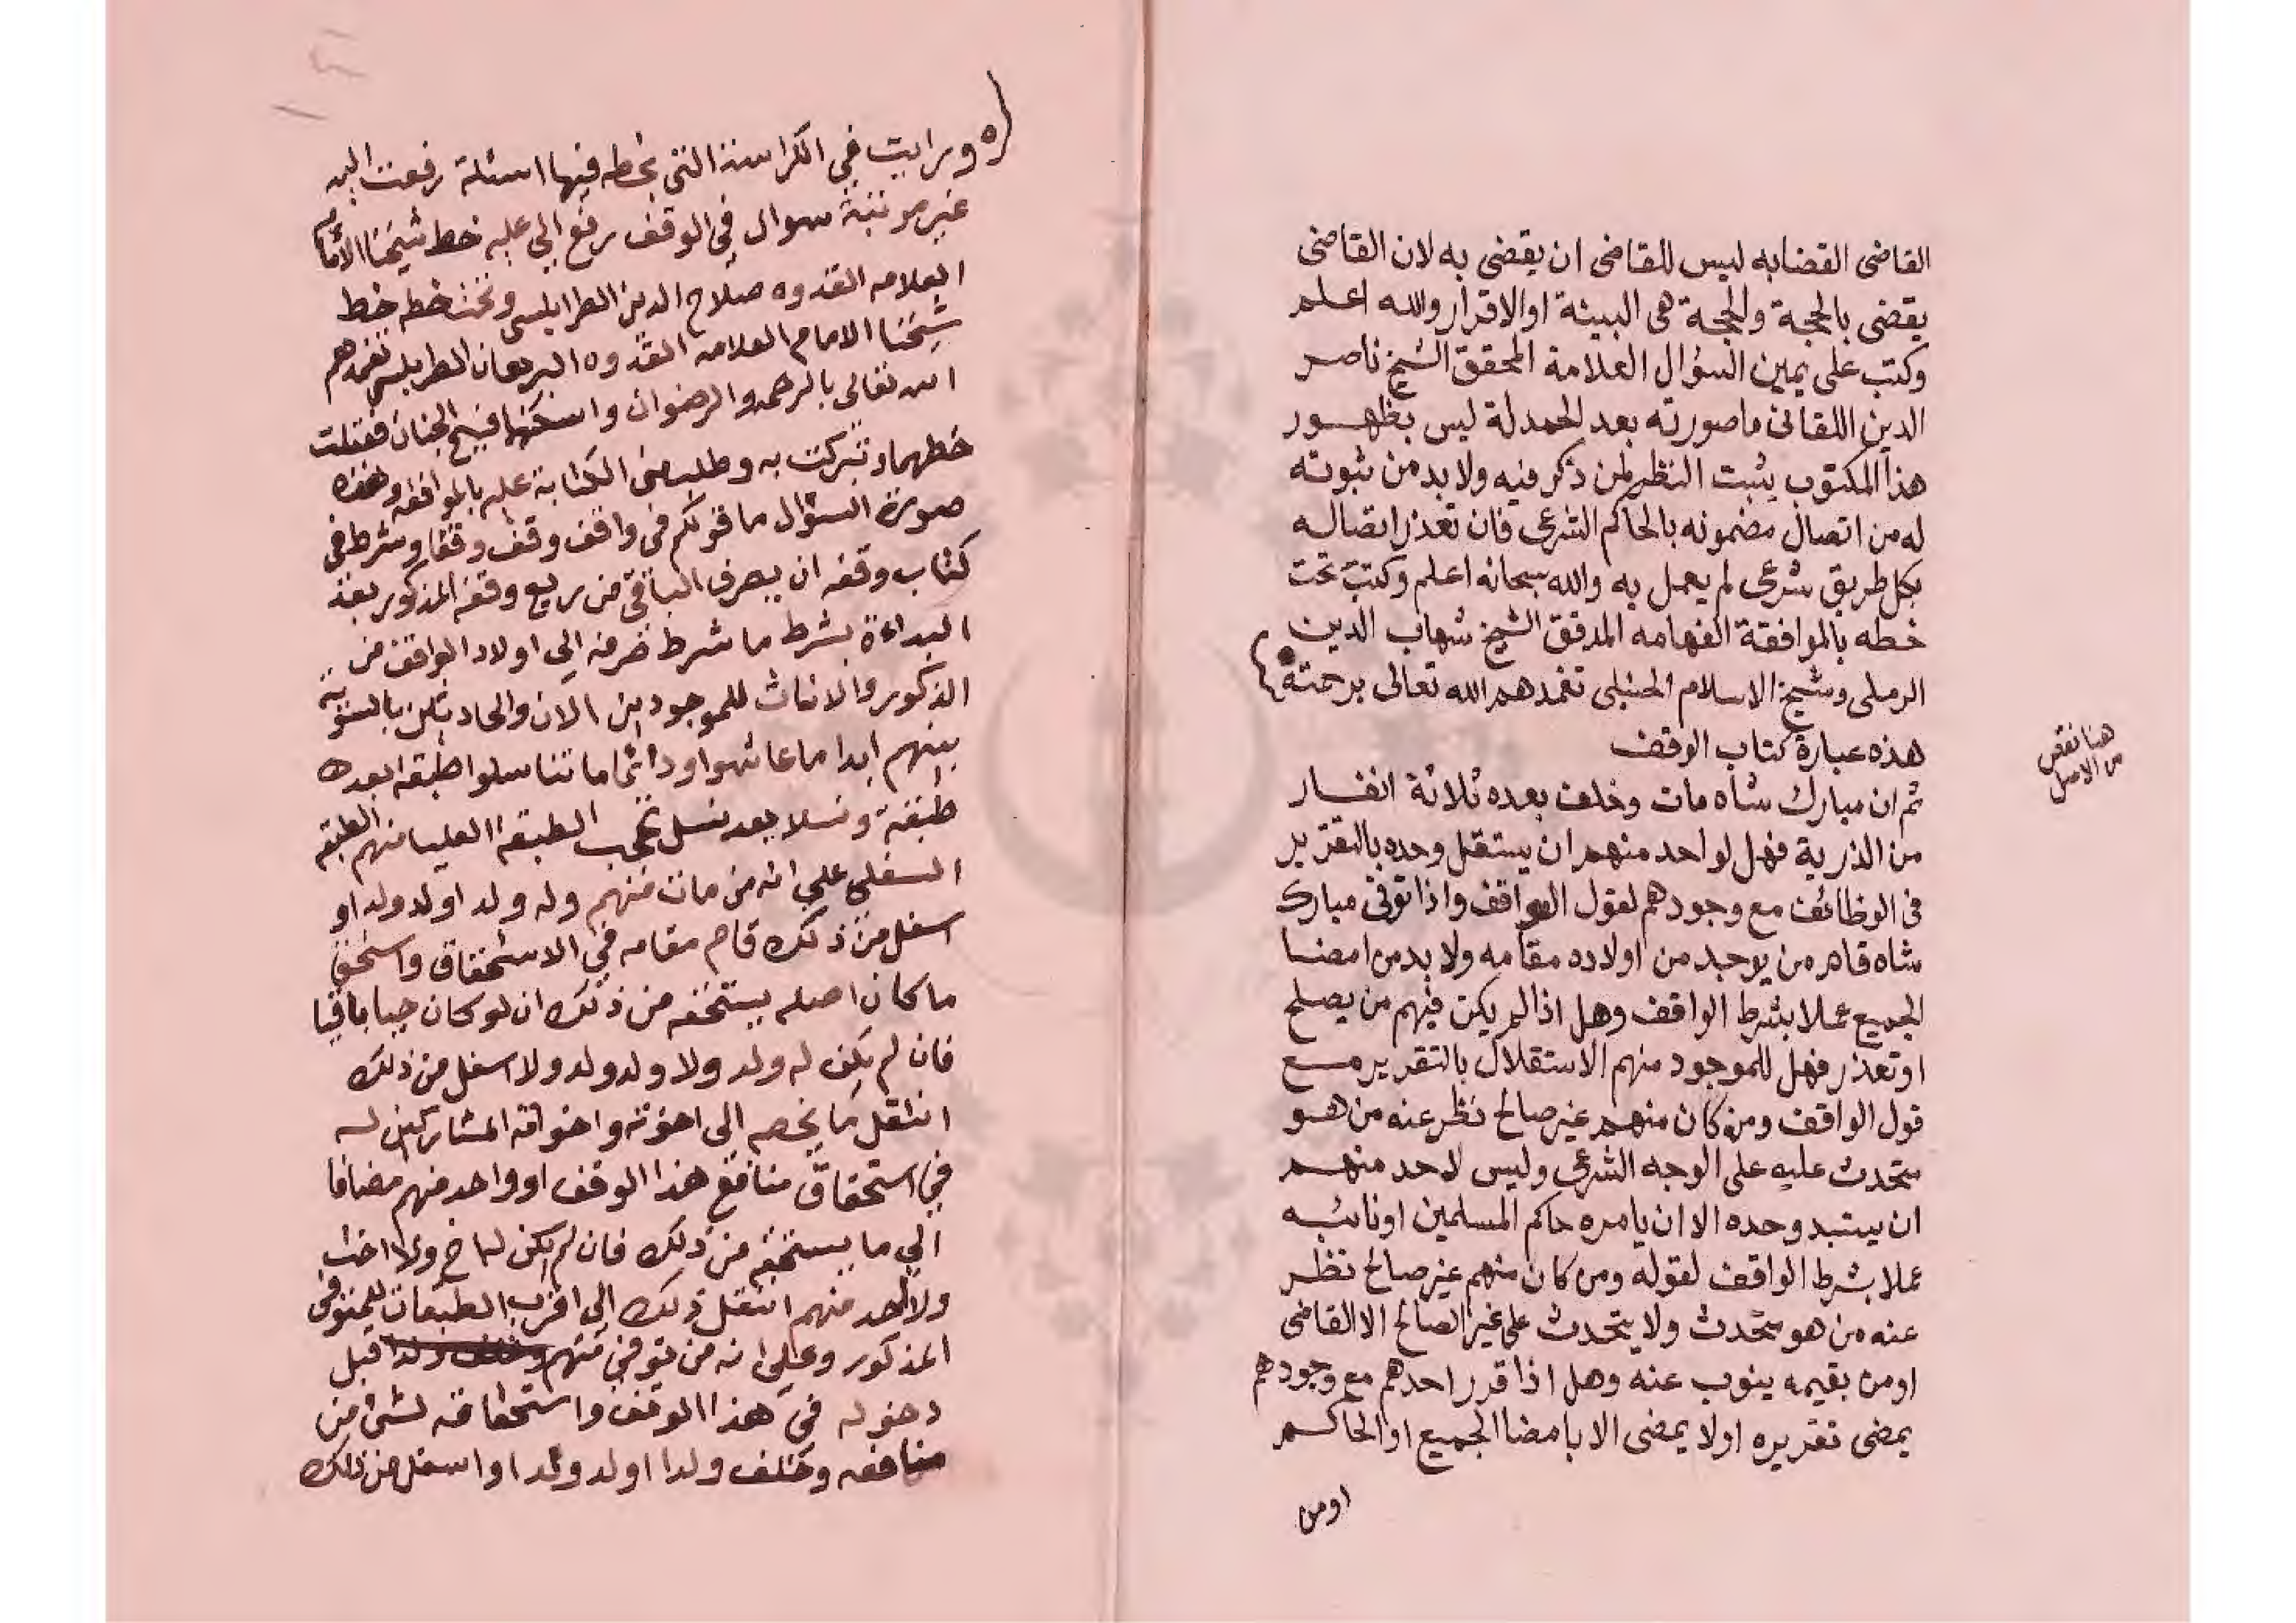 القاضى القضابه ليس للقاضى ان يقضى به لان القاضى
يقضى بالحجة والحجة هى البينة او الاقرار والله اعلم
وكتب على يمين السؤال العلامة المحقق الشيخ ناصر
الدين اللقانى ماصورته بعد الحمدلة ليس بظهور
هذا المكتوب يثبت النظر لمن ذكر فيه ولا بد من ثبوته
له من اتصال مضمونه بالحاكم الشرعى فان تعذر اتصاله
بكل طريق شرعى لم يعمل به والله سبحانه اعلم وكتب تحت
خطه بالموافقة الفهامه المدقق الشيخ شهاب الدين
الرملى وشيخ الاسلام الحنبلى تغمدهم الله تعالى برحمته
هذه عبارة كتاب الوقف
هنا نقص
من الاصل
ثم ان مبارك شاه مات وخلف بعده ثلاثة انفار
من الذرية فهل لواحد منهم ان يستقل وحده بالتقرير
فى الوظائف مع وجودهم لقول الواقف واذا توفى مبارك
شاه قام من يوجد من اولاده مقامه ولا بد من امضا
الجميع عملا بشرط الواقف وهل اذا لم يكن فيهم من يصلح
او تعذر فهل للموجود منهم الاستقلال بالتقرير مع
قول الواقف ومن كان منهم غير صالح نظر عنه من هو
متحدث عليه على الوجه الشرعى وليس لاحد منهم
ان يستبد وحده الا ان يامره حاكم المسلمين او نائبه
عملا بشرط الواقف لقوله ومن كان منهم غير صالح نظر
عنه من هو متحدث ولا يتحدث على غير الصالح الا القاضى
او من يقيمه ينوب عنه وهل اذا قرر احدهم مع وجودهم
يمضى تقريره او لا يمضى الا بامضا الجميع او الحاكم
او من
ورايت في الكراسة التي بخطه فيها اسئلة رفعت اليه
غير مرتبة سوال في الوقف رفع الي عليه خط شيخنا الامام
العلامه القدوه صلاح الدين الطرابلسى وتحت خطه خط
شيخنا الامام العلامه القدوه البرهان الطرابلسي تغمدهم
الله تعالى بالرحمه والرضوان واسكنها فسيح الجنان فقبلت
خطهما وتبركت به وطلب منى الكتابة عليه بالموافقه وهذه
صورة السؤال ما قولكم فى واقف وقف وقفا وشرط فى
كتاب وقفه ان يصرف الباقى من ريع وقفه المذكور بعد
البداءة بشرط ما شرط صرفه الي اولاد الواقف من
الذكور والاناث للموجودين الان والحادثين بالسوية
بينهم ابدا ما عاشوا ودائما ما تناسلوا طبقه بعد
طبقة ونسلا بعد نسل تحجب الطبقة العليا منهم الطبقه
السفلى علي انه من مات منهم وله ولد او ولد ولد او
اسفل من ذلك قام مقامه في الاستحقاق واستحق
ما كان اصله يستحقه من ذلك ان لو كان حيا باقيا
فان لم يكن له ولد ولا ولد ولد ولا اسفل من ذلك
انتقل ما يخصه الى اخوته واخواته المشاركين له
في استحقاق منافع هذا الوقف او واحد منهم مضافا
الي ما يستحقه من ذلك فان لم يكن له اخ ولا اخت
ولا احد منهم انتقل ذلك الى اقرب الطبقات للمتوفى
المذكور وعلى انه من توفي منهم قبل
دخوله فى هذا الوقف واستحقاقه لشئ من
منافعه وخلف ولدا او ولد ولد او اسفل من ذلك